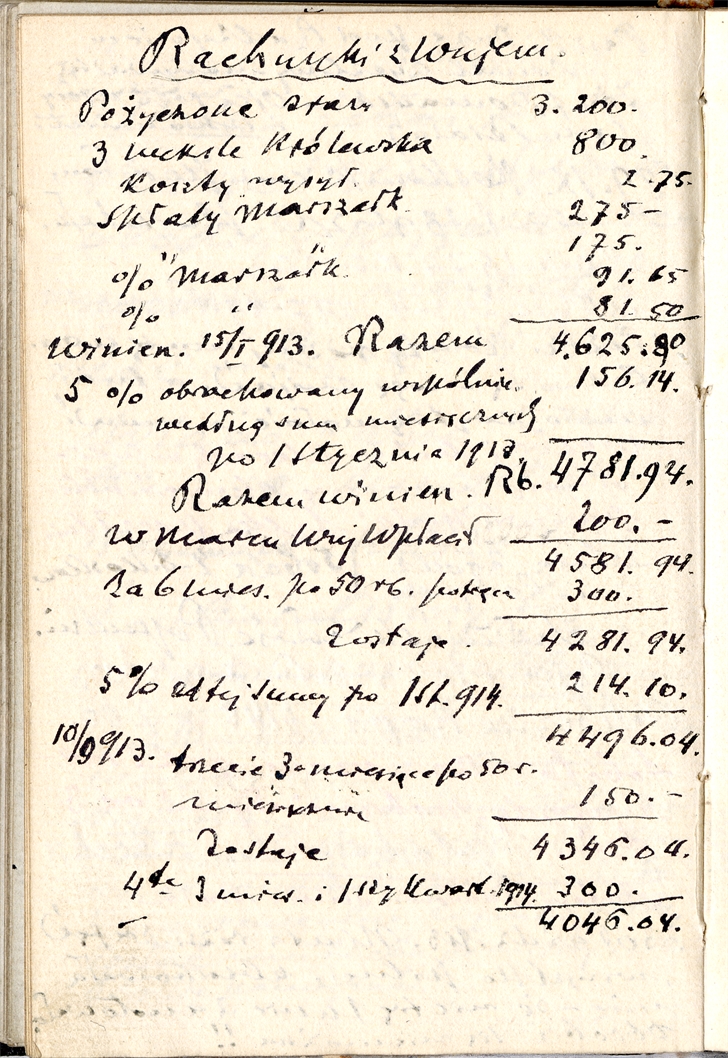 Rachunki z Wujem.
Pożyczone stary 3.200.
3 weksle Królewska 800.
Koszty wysył. 2.75.
Spłaty Marszałk. 275 –
" " 175.
% Marszałk. 91.65
% " 81.50
Winien. 15/I 913. Razem 4.625.80
5 % obrachowany wspólnie 156.14.
według sum miesięcznych
po 1 Stycznia 1913.
Razem winien. Rb. 4781.94.
w Marcu Wuj Wpłacił 200. –
4581.94.
Za 6 mies. po 50 rb. 300.
Zostaje. 4281.94.
5% od tej sumy po 1 St. 914. 214.10.
4496.04.
10/9 913. trzecie 3 miesiące po 50 r.
miesięcznie 150. –
Zostaje 4346.04.
4te 3 mies. i 1szy Kwart. 1914. 300.
4046.04.